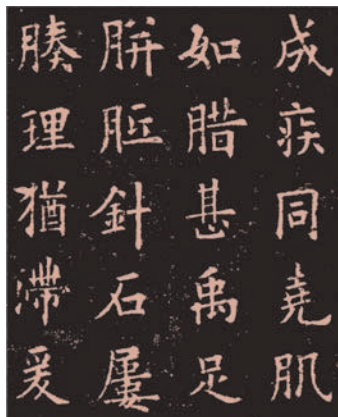 成疾同堯肌
如腊甚禹足
胼胝針石屢
腠理猶滯爰